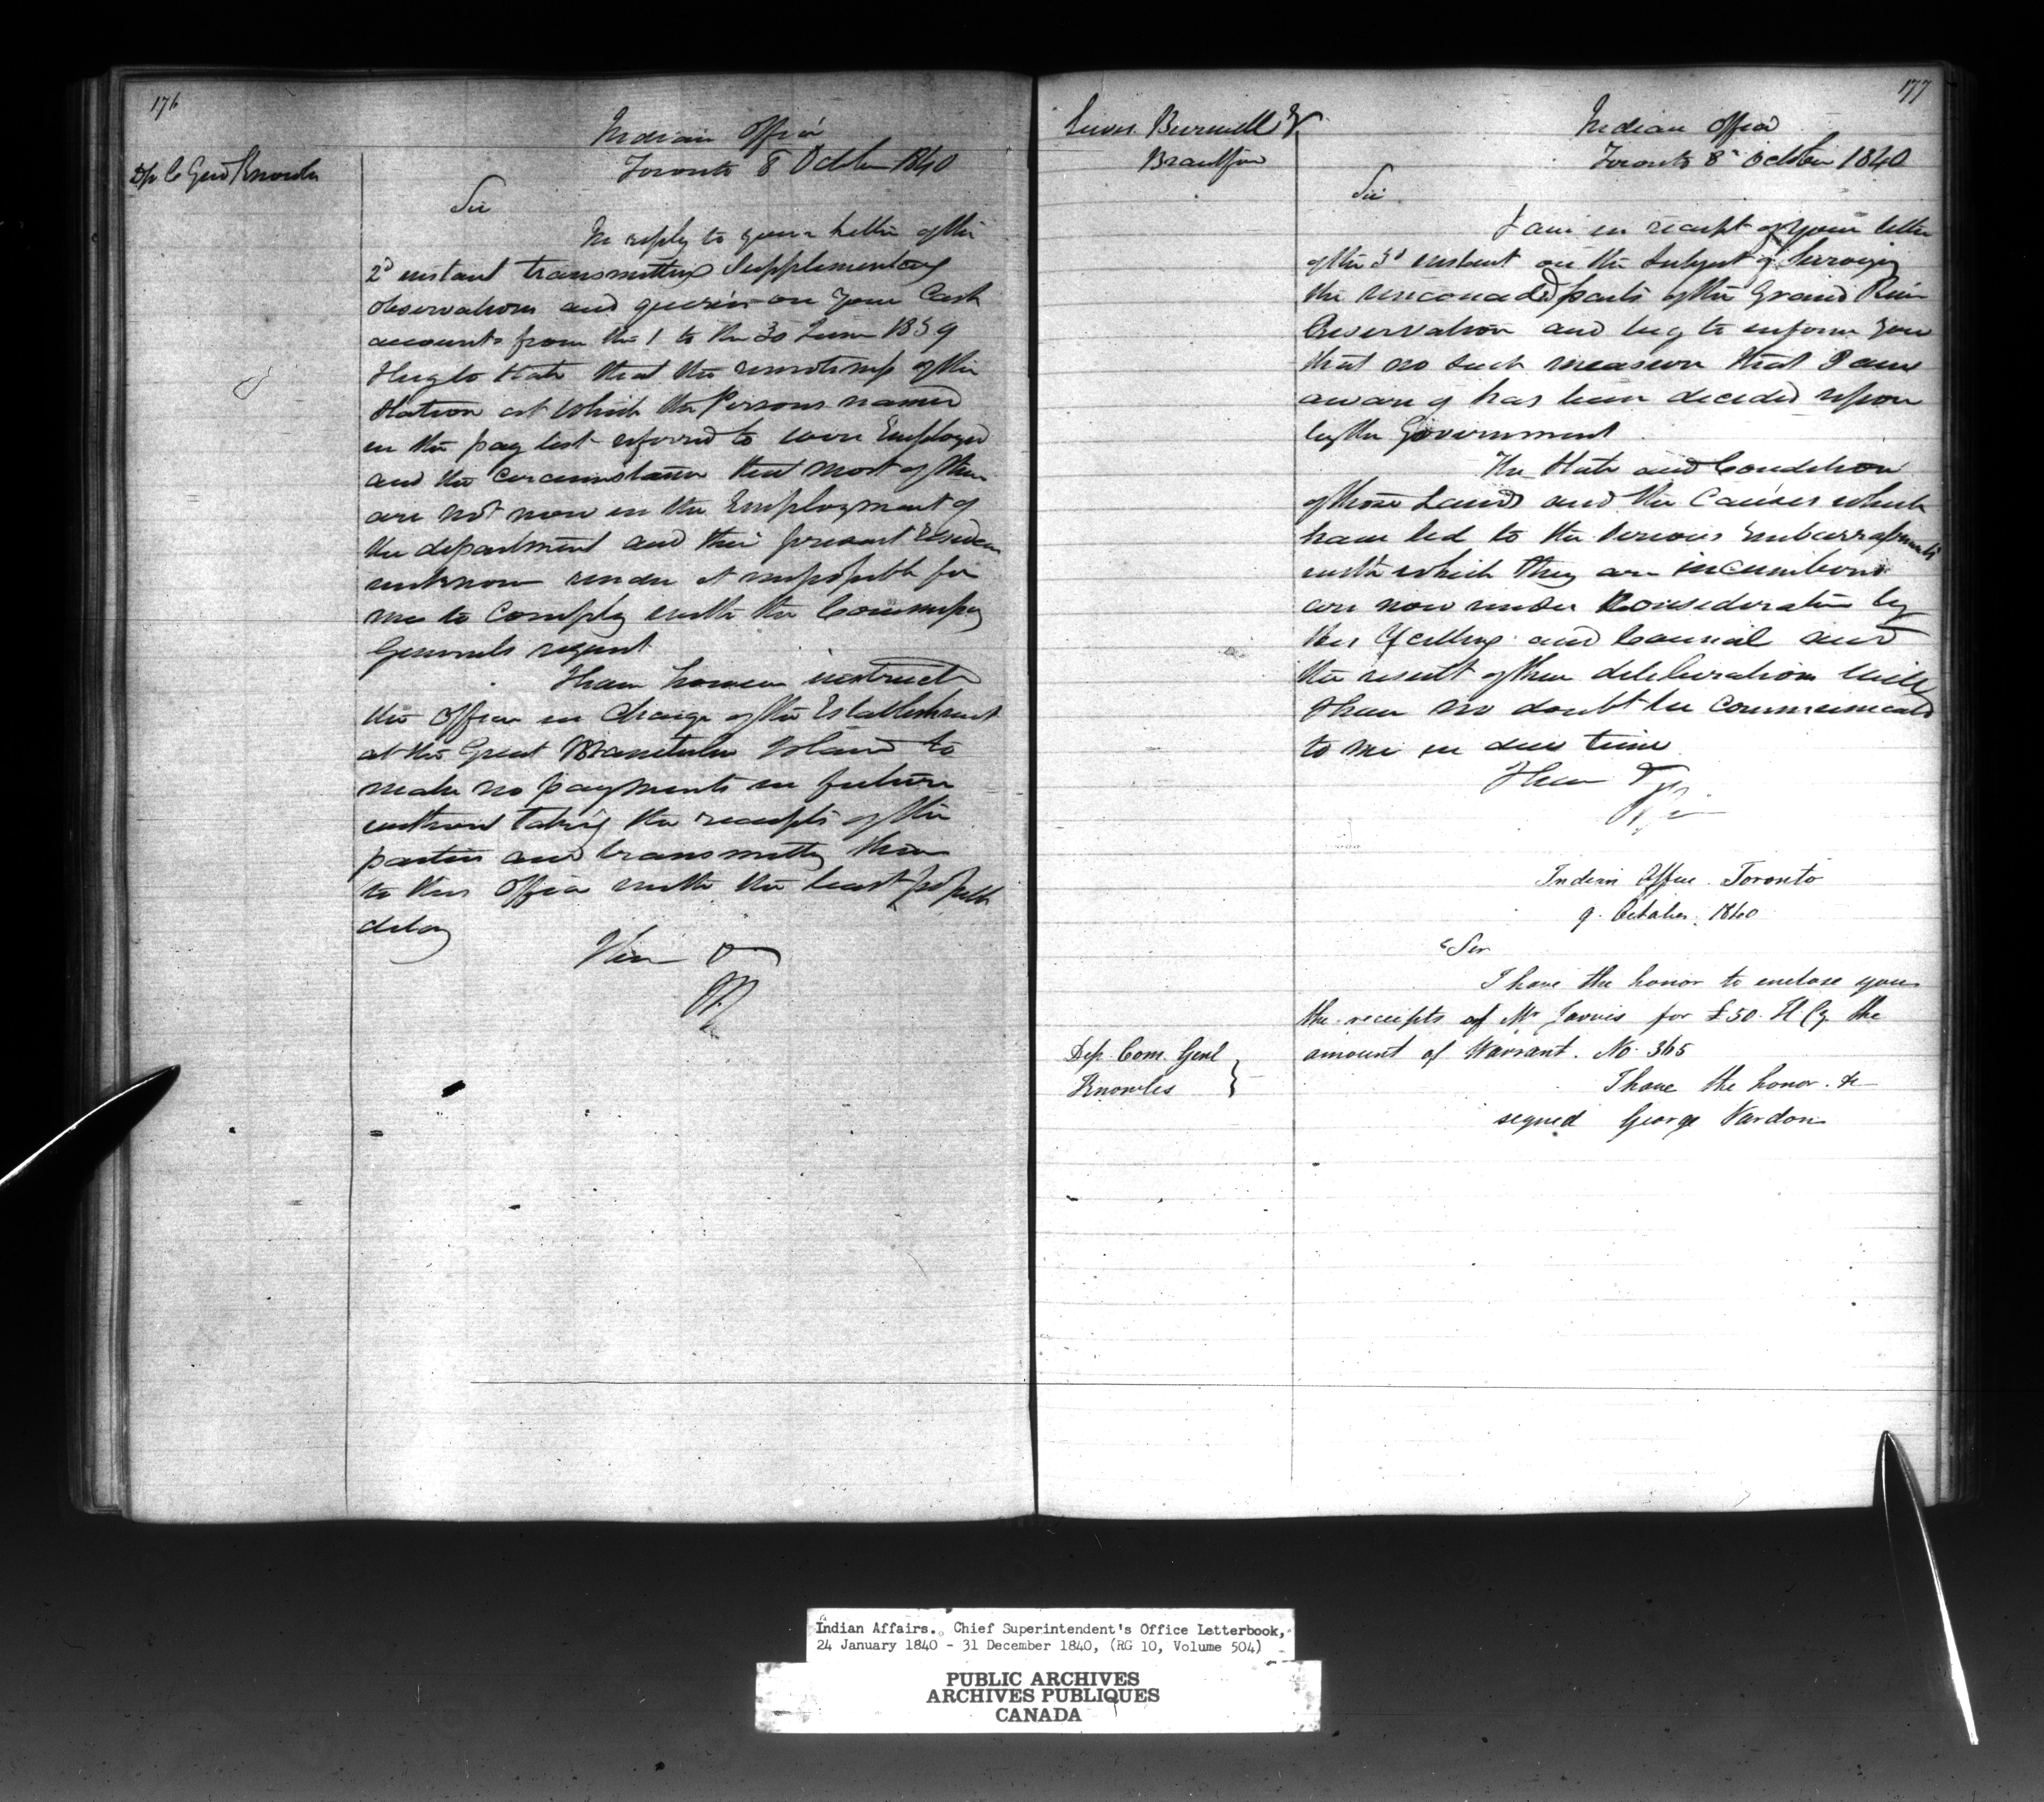 176
Indian Office
Toronto 8 October 1840
Dp C Genl Knowles
Sir
In reply to your letter of the
2d instant transmitting Supplementary
observations and queries on your Cash
accounts from the 1 to the 30 June 1839
I beg to state that the remoteness of the
Station at which the Persons named
in the pay list referred to were Employed
and the circumstance that most of them
are not now in the Employment of
the department and their present residence
unknown render it impossible for
me to comply with the Commissary
Generals request
I have however instructed
the Officer in charge of the Establishment
at the Great Manitulin Island to
make no payments in future
without taking the receipts of the
parties and transmitting them
to this Office with the least possible
delay
I have &
177
Lewis Burwell Er
Brantford
Indian Office
Toronto 8th October 1840
Sir
I am in receipt of your letter
of the 3d instant on the subject of Surveying
the unconceded parts of the Grand River
Reservation and beg to inform you
that no such measure that I am
aware of has been decided upon
by the Government
The State and Condition
of those Lands and the Causes which
have led to the serious Embarrassments
with which they are incumbered
are now under Consideration by
His Excellency and Council and
the result of their deliberation will
I have no doubt be communicated
to me in due time
I have &
Indian Office. Toronto
9. October. 1840
Sir
I have the honor to enclose you
the receipts of Mr Jarvis for £50. H Cy the
amount of Warrant. No. 365
Dep. Com. Genl
Knowles
I have the honor. &c
signed George Vardon
Indian Affairs. Chief Superintendent's Office Letterbook,
24 January 1840 - 31 December 1840, (RG 10, Volume 504)
PUBLIC ARCHIVES
ARCHIVES PUBLIQUES
CANADA